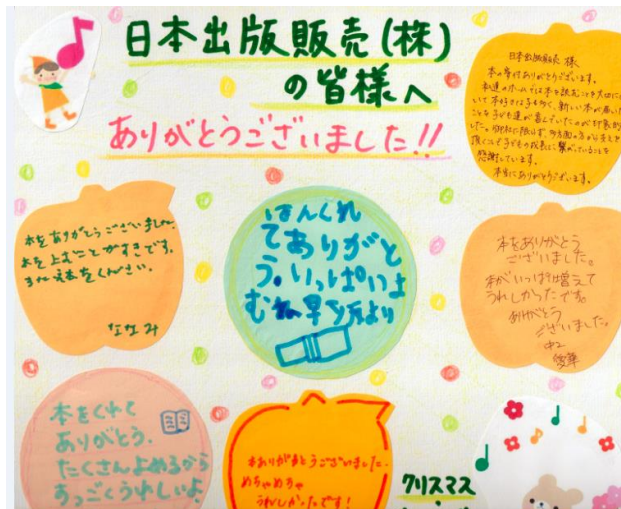 日本出版販売(株)
の皆様へ
ありがとうございました!!
日本出版販売 様
本の寄付ありがとうございます。
感謝しています。
本当にありがとうございます。
本をありがとうございました。
本を上むことがすきです。
また本をください。
ななみ
ほんくれ
てありがと
う。いっぱいよ
むね。早
より
本をありがとう
ございました。
本がいっぱい増えて
うれしかったです。
ありがとう
ございました。
中2
愛華
本をくれて
ありがとう.
たくさんよめるから
すっごくうれしいよ
本ありがとうございました.
めちゃめちゃ
うれしかったです!
クリスマス